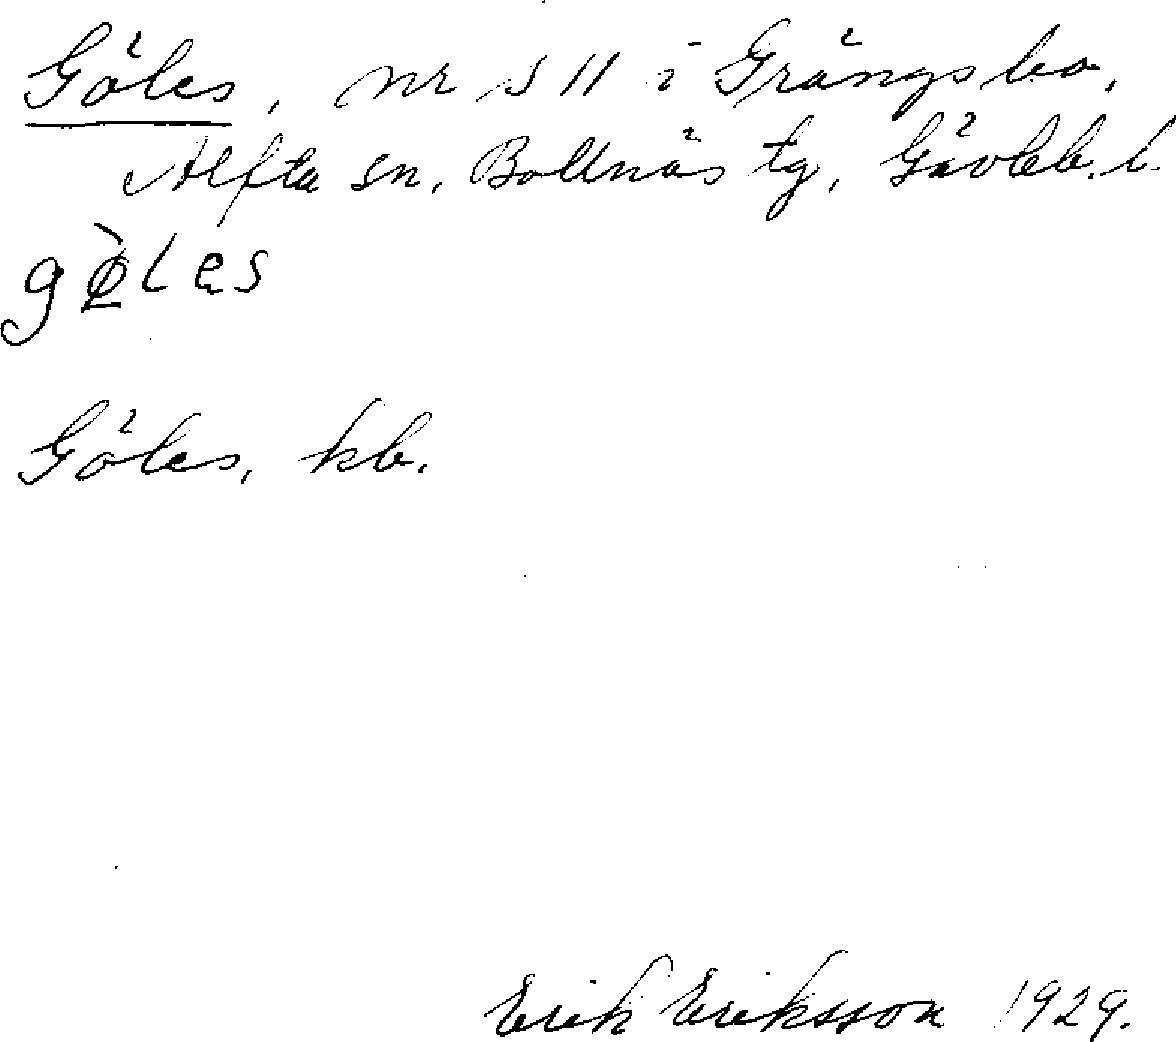 Göles, nr S 11 i Grängsbo,
Alfta sn, Bollnäs tg, Gävleb. l.
gø̀les
Göles, kb.
Erik Eriksson 1929.